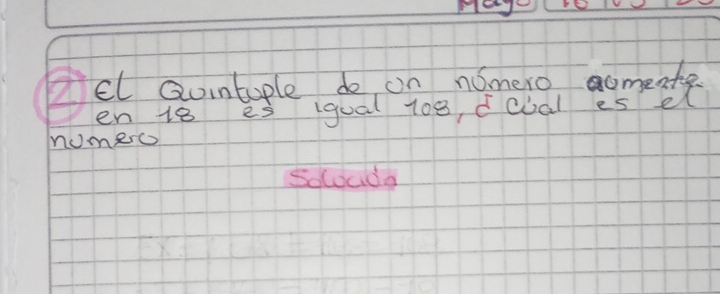 Mayo
② El Quintuple de un número aumenta
en 18 es igual 108, ¿ Cúal es el
numero
Solución